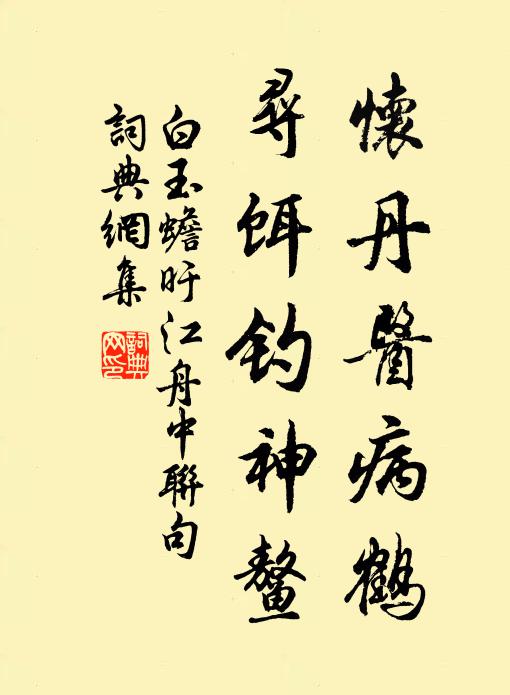 懷丹醫病鶴
尋餌釣神鼇
白玉蟾盱江舟中聯句
詞典網集
詞典
网印